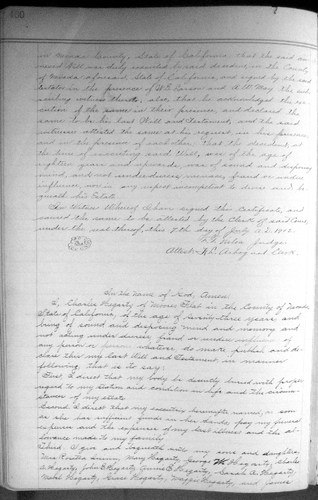 400
in Nevada County, State of California, that the said an-
nexed Will was duly executed by said decedent in the County
of Nevada aforesaid, State of California, and signed by the said
testator in the presence of and A. W. May the sub-
scribing witness thereto, also, that he acknowledged the ex-
ecution of the same in their presence, and declared the
same to be his last Will and Testament, and the said
witnesses attested the same at his request, in his presence
and in the presence of each other. That the decedent, at
the time of executing said Will, was of the age of
eighteen years and upwards, was of sound and disposing
mind, and not under duress, menace, fraud or undue
influence, nor in any respect incompetent to devise and be-
queath his Estate.
In Witness Whereof I have signed this Certificate, and
caused the same to be attested by the Clerk of said Court
under the seal thereof, this 7th day of July A. D. 1902.
Judge
Attest Clerk.
In the name of God, Amen.
I, Charlie Hegarty of Moores Flat in the County of Nevada,
State of California, of the age of seventy three years and
being of sound and disposing mind and memory and
not acting under duress, fraud or undue influence of
any person whatever, do make, publish and de-
clare this my last Will and Testament in manner
following, that is to say:
First I direct that my body be decently buried with proper
regard to my station and condition in life and the circum-
stances of my estate
Second I direct that my executors hereinafter named, as soon
as they have sufficient funds in their hands, pay my funeral
expenses and the expenses of my last illness and the al-
lowance made to my family
Third I give and bequeath unto my sons and daughters,
Mrs Mary Hegarty, Hegarty, Charles
Hegarty, John E Hegarty, Annie Hegarty, Sarah A Hegarty,
Hegarty, Hegarty, Maggie Hegarty, and James